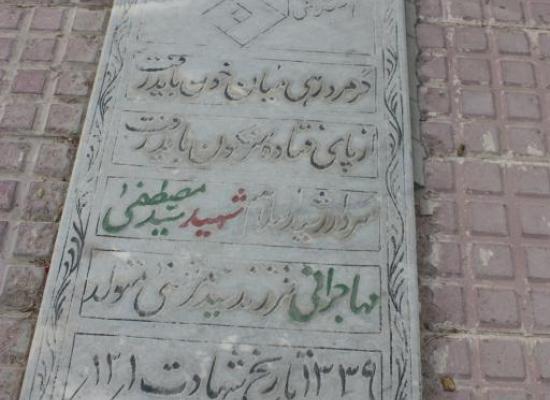 گر مرد رهی میان خون باید رفت
از پای فتاده سرنگون باید رفت
سردار رشید اسلام شهید سید مصطفی
مهاجرانی فرزند سید مرتضی متولد
۱۳۳۹ تاریخ شهادت